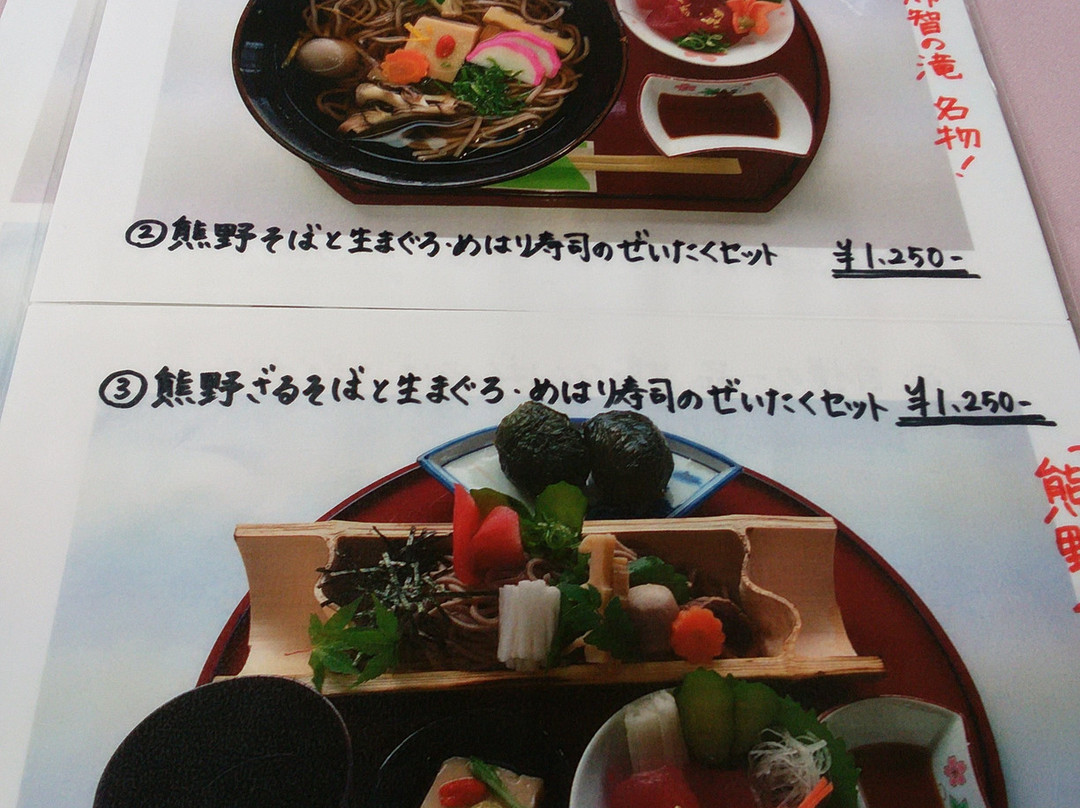 智の滝 名物!
②熊野そばと生まぐろ・めはり寿司のぜいたくセット ¥1,250-
③熊野ざるそばと生まぐろ・めはり寿司のぜいたくセット ¥1,250-
熊野